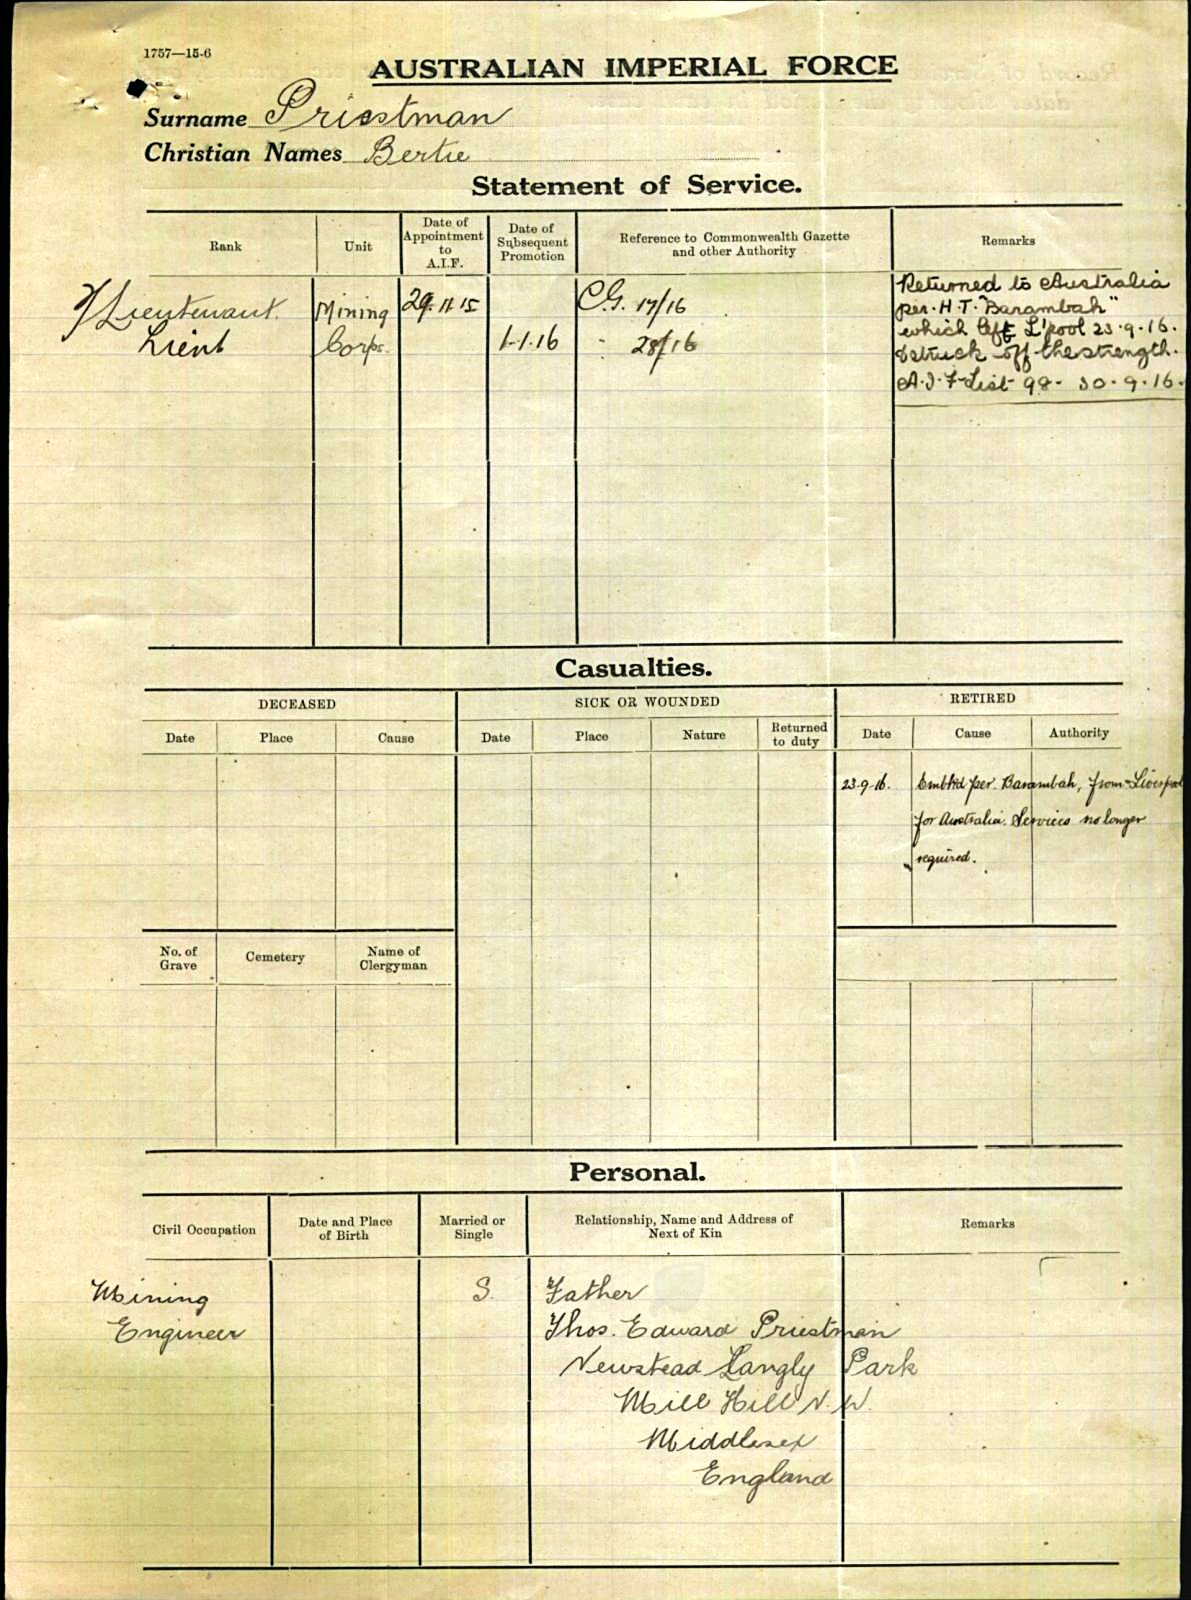 1757—15-6
AUSTRALIAN IMPERIAL FORCE
Surname Priestman
Christian Names Bertie
Statement of Service.
Rank
Unit
Date of Appointment to A.I.F.
Date of Subsequent Promotion
Reference to Commonwealth Gazette and other Authority
Remarks
2/Lieutenant Mining 29.11.15 C.G. 17/16
Lieut Corps. 1.1.16 " 28/16
Returned to Australia
per. H.T. "Barambah"
which left L'pool 23.9.16.
Struck off the strength.
A.I.F List 98. 30.9.16.
Casualties.
DECEASED
SICK OR WOUNDED
RETIRED
Date Place Cause
Date Place Nature Returned to duty
Date Cause Authority
23.9.16. Embk'd per. Barambah, from Liverpool
for Australia. Services no longer
required.
No. of Grave
Cemetery
Name of Clergyman
Personal.
Civil Occupation
Date and Place of Birth
Married or Single
Relationship, Name and Address of Next of Kin
Remarks
Mining S. Father
Engineer Thos. Edward Priestman
Newstead Langly Park
Mill Hill N.W.
Middlesex
England